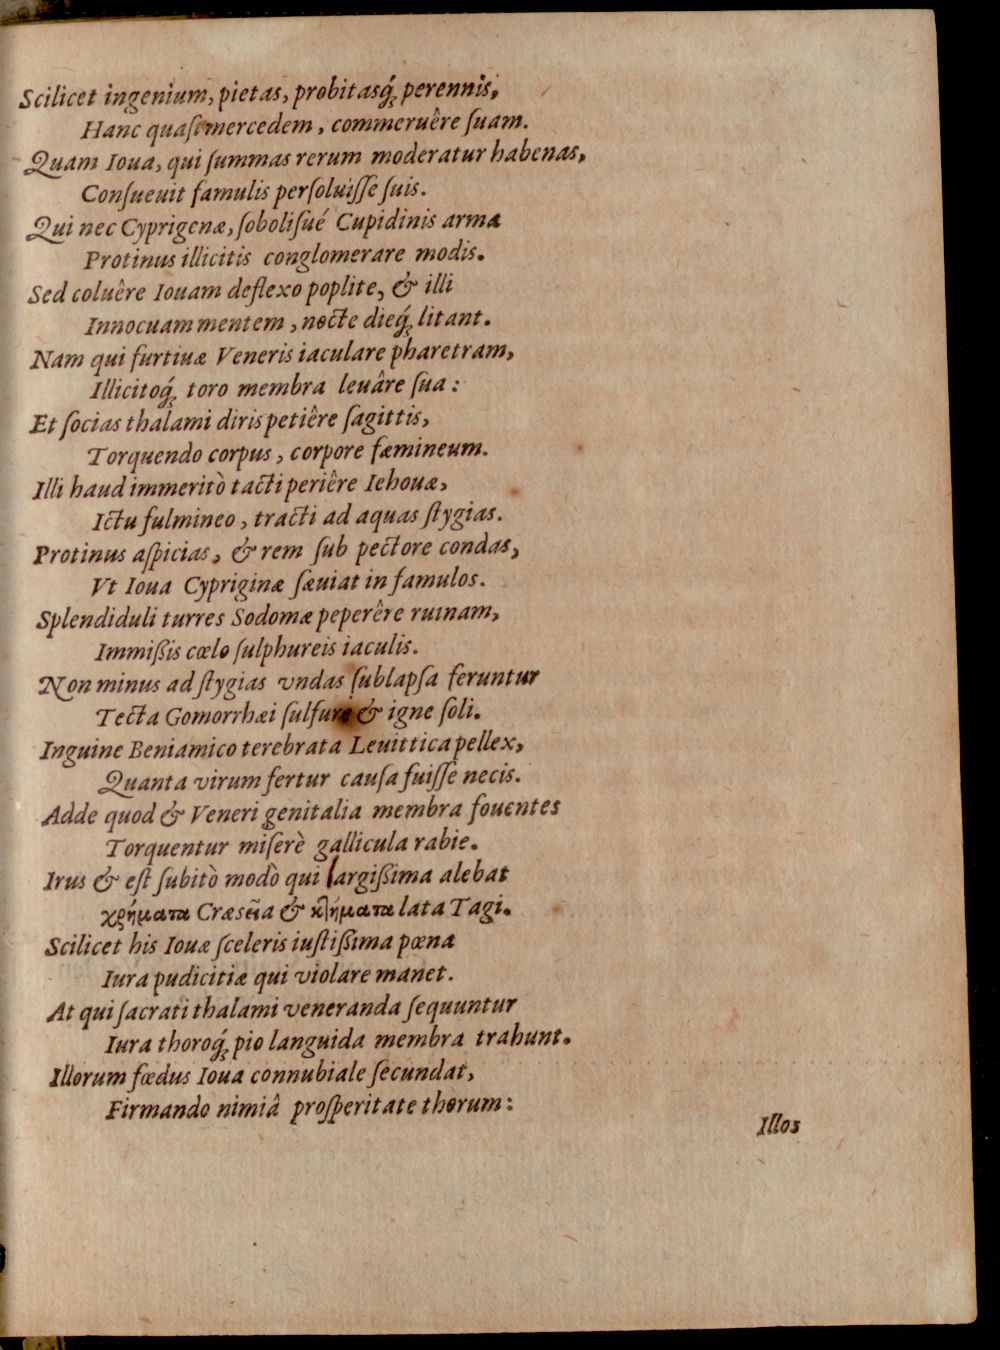 Scilicet ingenium, pietas, probitasq́; perennis,
Hanc quaſi mercedem, commeruêre ſuam.
Quam Ioua, qui ſummas rerum moderatur habenas,
Conſueuit famulis perſoluiſſe ſuis.
Qui nec Cyprigenæ, ſoboliſué Cupidinis arma
Protinus illicitis conglomerare modis.
Sed coluêre Iouam deflexo poplite, & illi
Innocuam mentem, nocte dieq́; litant.
Nam qui furtiuæ Veneris iaculare pharetram,
Illicitoq́; toro membra leuâre ſua:
Et ſocias thalami diris petiêre ſagittis,
Torquendo corpus, corpore fæmineum.
Illi haud immeritò tacti periêre Iehouæ,
Ictu fulmineo, tracti ad aquas ſtygias.
Protinus aſpicias, & rem ſub pectore condas,
Vt Ioua Cypriginæ ſæuiat in famulos.
Splendiduli turres Sodomæ peperêre ruinam,
Immißis cœlo ſulphureis iaculis.
Non minus ad ſtygias vndas ſublapſa feruntur
Tecta Gomorrhæi ſulfure & igne ſoli.
Inguine Beniamico terebrata Leuittica pellex,
Quanta virum fertur cauſa fuiſſe necis.
Adde quod & Veneri genitalia membra fouentes
Torquentur miſerè gallicula rabie.
Irus & eſt ſubitò modò qui largißima alebat
χρήματα Cræsεῖa & κλήματα lata Tagi.
Scilicet his Iouæ ſceleris iuſtißima pœna
Iura pudicitiæ qui violare manet.
At qui ſacrati thalami veneranda ſequuntur
Iura thoroq́; pio languida membra trahunt.
Illorum fœdus Ioua connubiale ſecundat,
Firmando nimiâ proſperitate thorum:
Illos